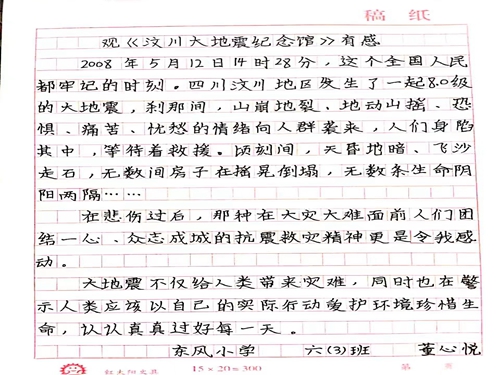 稿纸
观《汶川大地震纪念馆》有感
2008年5月12日14时28分，这个全国人民
都牢记的时刻。四川汶川地区发生了一起8.0级
的大地震，刹那间，山崩地裂、地动山摇、恐
惧、痛苦、忧愁的情绪向人群袭来，人们身陷
其中，等待着救援。顷刻间，天昏地暗、飞沙
走石，无数间房子在摇晃倒塌，无数条生命阴
阳两隔……
在悲伤过后，那种在大灾大难面前人们团
结一心、众志成城的抗震救灾精神更是令我感
动。
大地震不仅给人类带来灾难，同时也在警
示人类应该以自己的实际行动爱护环境珍惜生
命，认认真真过好每一天。
东风小学 六(3)班 董心悦
红太阳文具 15×20=300 第 页